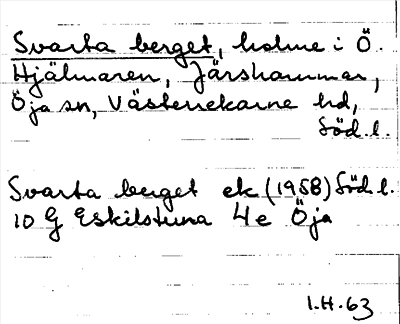 Svarta berget, holme i Ö.
Hjälmaren, Järshammar,
Öja sn, Västerrekarne hd,
Söd. l.
Svarta berget ek (1958) Söd. l.
10 G Eskilstuna 4e Öja
I.H. 63